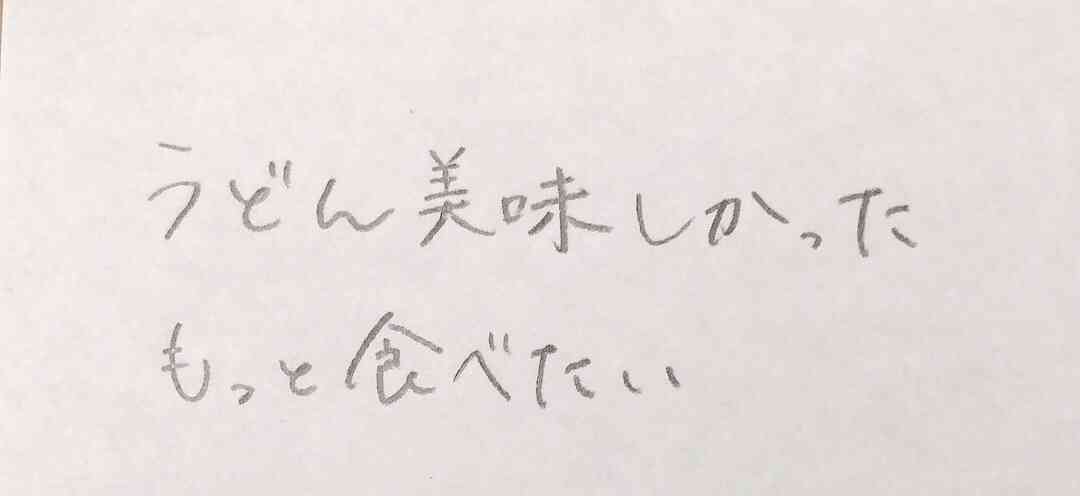 うどん美味しかった
もっと食べたい